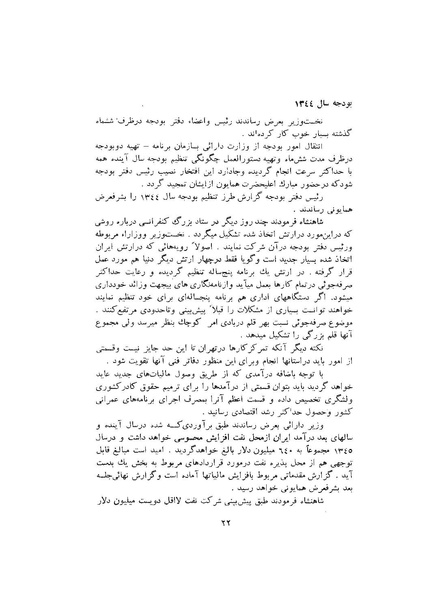 بودجه سال ١٣٤٤
نخست‌وزیر بعرض رساندند رئیس واعضاء دفتر بودجه درظرف ششماه
گذشته بسیار خوب کار کرده‌اند .
انتقال امور بودجه از وزارت دارائی بسازمان برنامه – تهیه دوبودجه
درظرف مدت شش‌ماه وتهیه دستورالعمل چگونگی تنظیم بودجه سال آینده همه
با حداکثر سرعت انجام گردیده وجادارد این افتخار نصیب رئیس دفتر بودجه
شودکه درحضور مبارك اعلیحضرت همایون ازایشان تمجید گردد .
رئیس دفتر بودجه گزارش طرز تنظیم بودجه سال ١٣٤٤ را بشرفعرض
همایونی رساندند .
شاهنشاه فرمودند چند روز دیگر در ستاد بزرگ کنفرانسی درباره روشی
که دراین‌مورد درارتش اتخاذ شده تشکیل میگردد . نخست‌وزیر ووزراء مربوطه
ورئیس دفتر بودجه درآن شرکت نمایند . اصولاً رویه‌هائی که درارتش ایران
اتخاذ شده بسیار جدید است وگویا فقط درچهار ارتش دیگر دنیا هم مورد عمل
قرار گرفته . در ارتش یك برنامه پنج‌ساله تنظیم گردیده و رعایت حداکثر
صرفه‌جوئی درتمام کارها بعمل میآید وازنامه‌نگاری های بیجهت وزائد خودداری
میشود. اگر دستگاههای اداری هم برنامه پنجساله‌ای برای خود تنظیم نمایند
خواهند توانست بسیاری از مشکلات را قبلاً پیش‌بینی وتاحدودی مرتفع‌کنند .
موضوع صرفه‌جوئی نسبت بهر قلم دربادی امر کوچك بنظر میرسد ولی مجموع
آنها قلم بزرگی را تشکیل میدهد .
نکته دیگر آنکه تمرکزکارها درتهران تا این حد جایز نیست وقسمتی
از امور باید دراستانها انجام وبرای این منظور دفاتر فنی آنها تقویت شود .
با توجه باضافه درآمدی که از طریق وصول مالیات‌های جدید عاید
خواهد گردید باید بتوان قسمتی از درآمدها را برای ترمیم حقوق کادرکشوری
ولشگری تخصیص داده و قسمت اعظم آنرا بمصرف اجرای برنامه‌های عمرانی
کشور وحصول حداکثر رشد اقتصادی رسانید .
وزیر دارائی بعرض رساندند طبق برآوردی‌کـه شده درسال آینده و
سالهای بعد درآمد ایران ازمحل نفت افزایش محسوسی خواهد داشت و درسال
١٣٤٥ مجموعاً به ٦٤٠ میلیون دلار بالغ خواهدگردید . امید است مبالغ قابل
توجهی هم از محل پذیره نفت درمورد قراردادهای مربوط به بخش یك بدست
آید . گزارش مقدماتی مربوط بافزایش مالیاتها آماده است وگزارش نهائی‌جلسه
بعد بشرفعرض همایونی خواهد رسید .
شاهنشاه فرمودند طبق پیش‌بینی شرکت نفت لااقل دویست میلیون دلار
٢٢